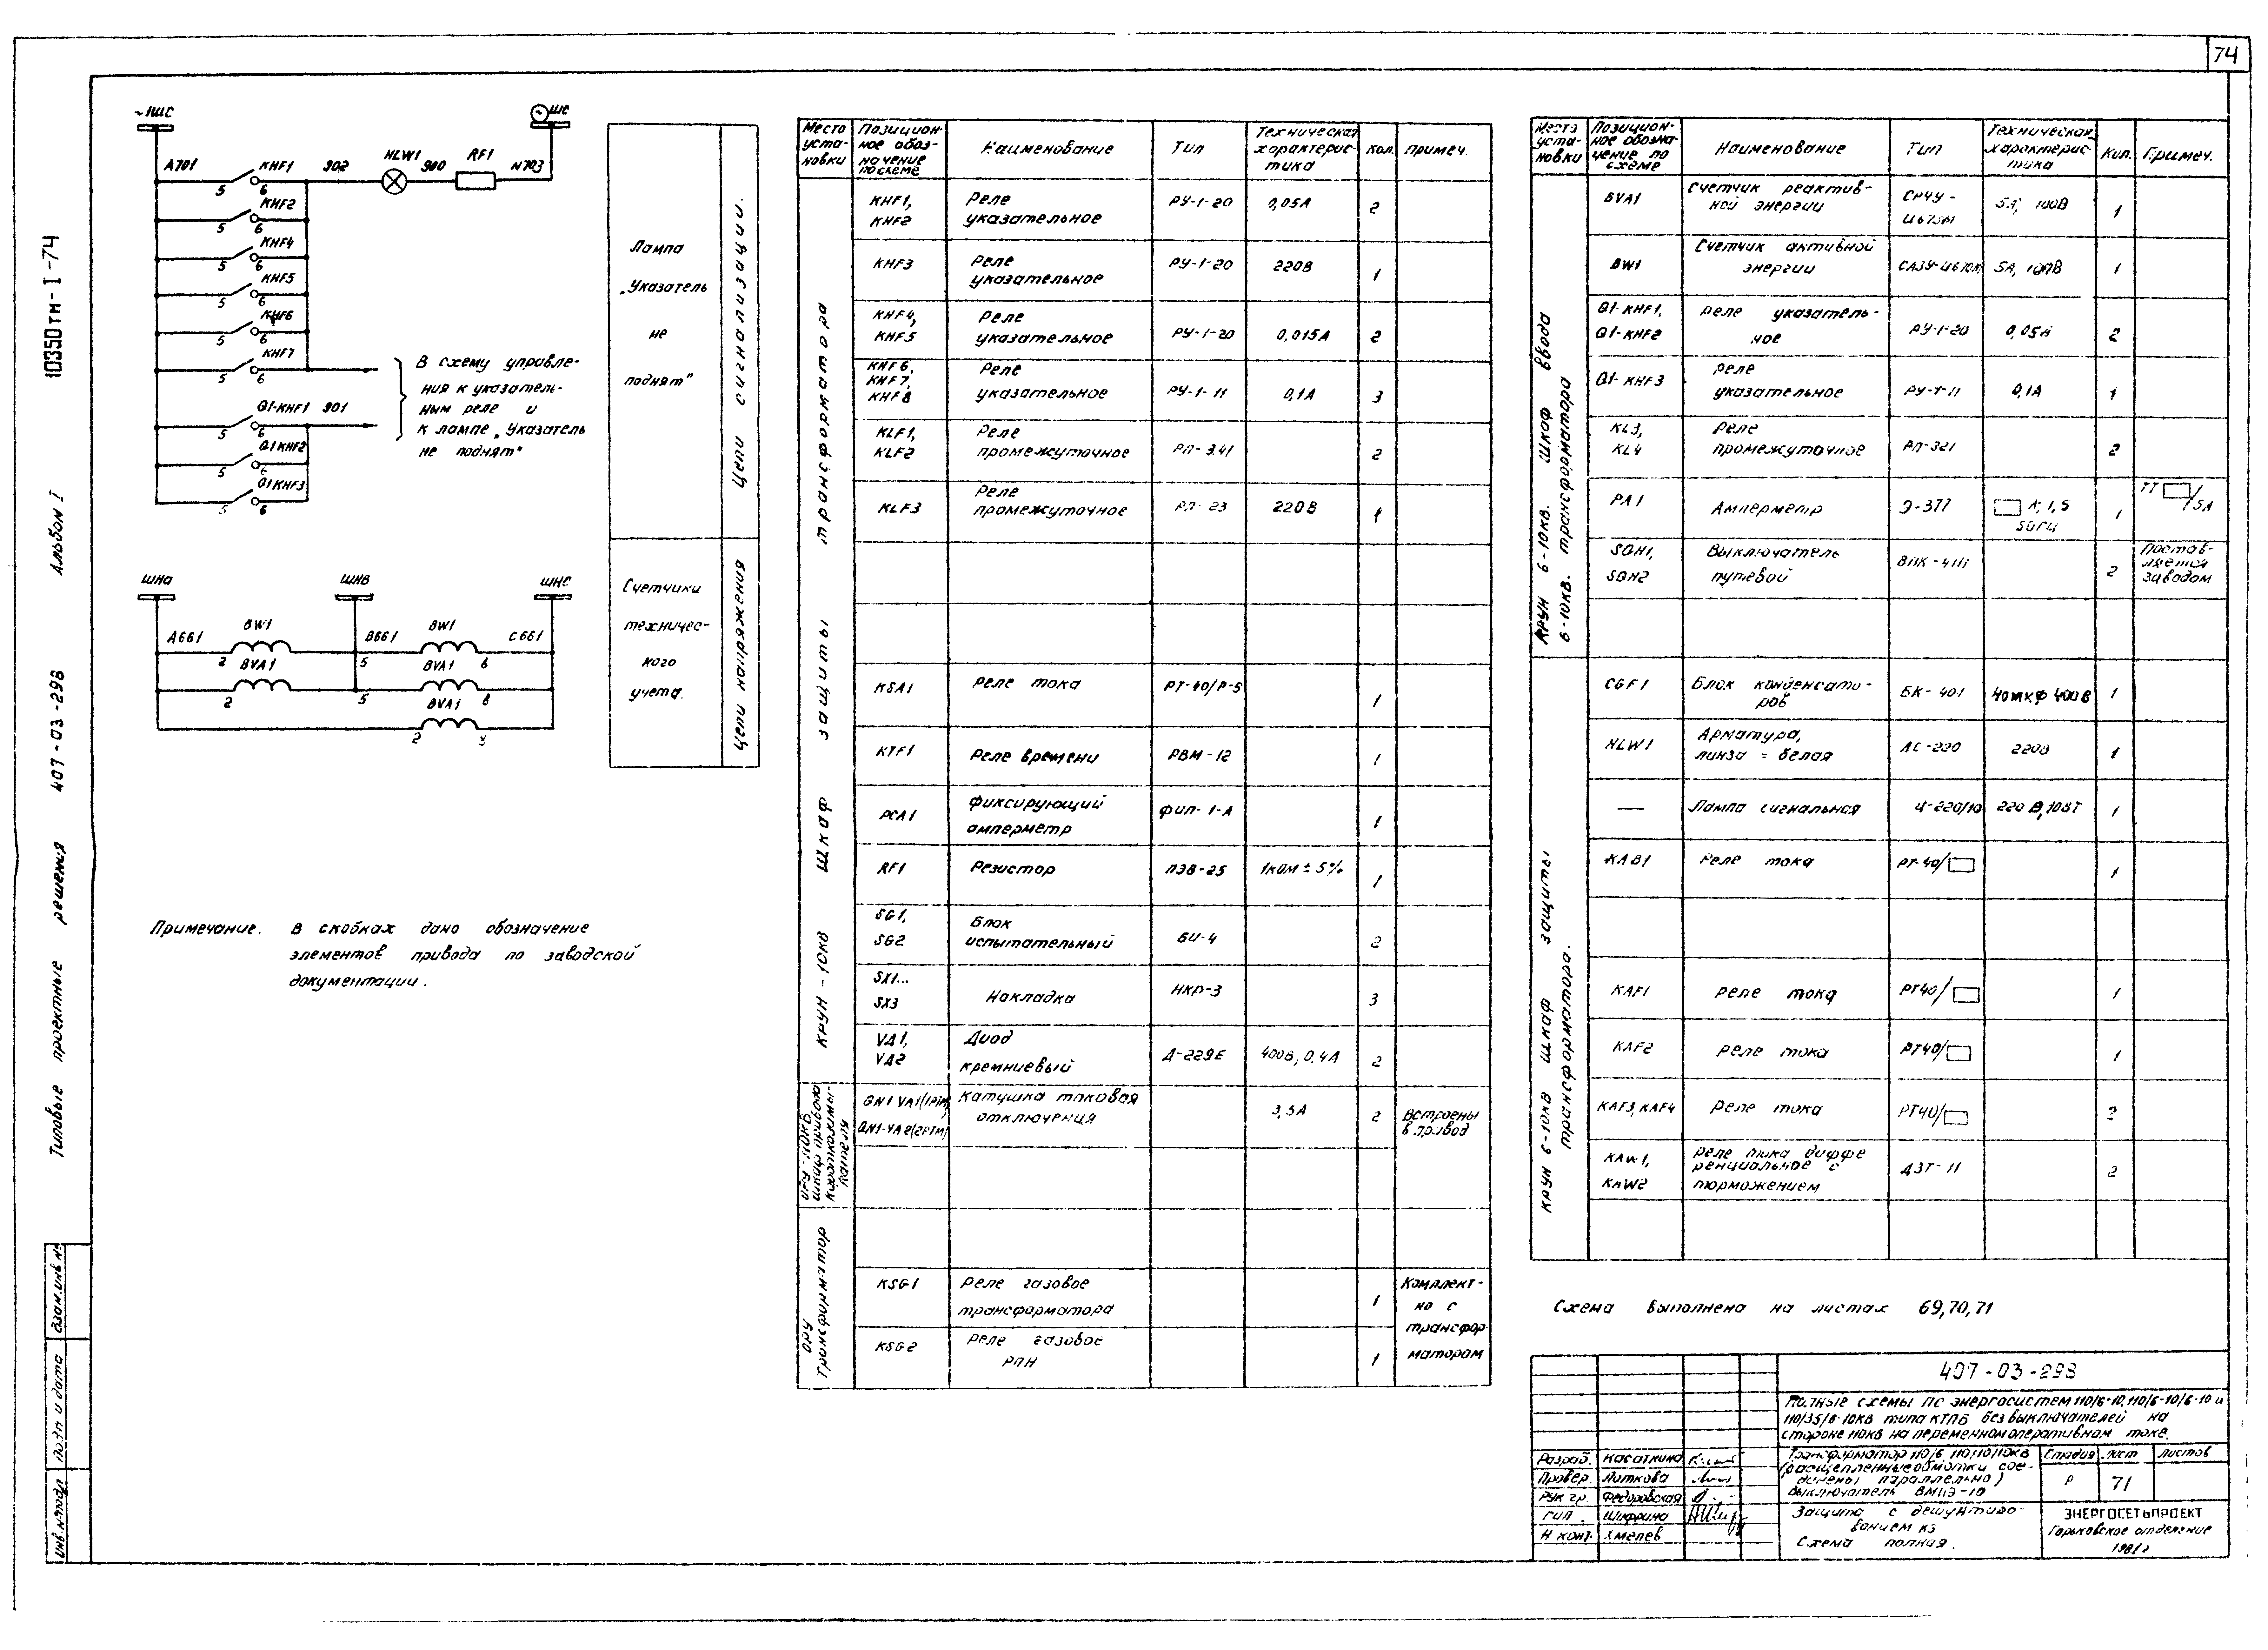 74
10350тм-I-74
Альбом I
407-03-298
Типовые проектные решения
Взам.инв №
Подп и дата
Инв.№подл
~1ШС
ШС
А701
KHF1
902
HLW1
900
RF1
N703
5 6
KHF2
5 6
KHF4
5 6
KHF5
5 6
KHF6
5 6
KHF7
5 6
Q1-KHF1 901
5 6
Q1KHF2
5 6
Q1KHF3
5 6
В схему управле-
ния к указатель-
ным реле и
к лампе „Указатель
не поднят"
Лампа
„Указатель
не
поднят"
Цепи сигнализации.
ШНа
ШНВ
ШНС
А661
BW1
В661
BW1
С661
2
BVA1
5
BVA1
6
2
5
BVA1
8
2
3
Счетчики
техничес-
кого
учета.
Цепи напряжения
Примечание. В скобках дано обозначение
элементов привода по заводской
документации.
Место уста- новки
Позицион- ное обоз- начение по схеме
Наименование
Тип
Техническая характерис- тика
Кол.
Примеч.
КРУН-10кв Шкаф защиты трансформатора
KHF1, KHF2 Реле указательное РУ-1-20 0,05А 2
KHF3 Реле указательное РУ-1-20 220В 1
KHF4, KHF5 Реле указательное РУ-1-20 0,015А 2
KHF6, KHF7, KHF8 Реле указательное РУ-1-11 0,1А 3
KLF1, KLF2 Реле промежуточное РП-341 2
KLF3 Реле промежуточное РП-23 220В 1
KSA1 Реле тока РТ-40/Р-5 1
KTF1 Реле времени РВМ-12 1
PCA1 Фиксирующий амперметр ФИП-1-А 1
RF1 Резистор ПЭВ-25 1кОм ± 5% 1
SG1, SG2 Блок испытательный БИ-4 2
SX1... SX3 Накладка НКР-3 3
VД1, VД2 Диод кремниевый Д-229Е 400В, 0,4А 2
ОРУ-110кВ. Шкаф привода короткозамы- кателя
QN1-YA1(1РТМ) QN1-YA2(2РТМ) Катушка токовая отключения 3,5А 2 Встроены в привод
ОРУ Трансформатор
KSG1 Реле газовое трансформатора 1
KSG2 Реле газовое РПН 1
Комплект- но с трансфор матором
Место уста- новки
Позицион- ное обозна- чение по схеме
Наименование
Тип
Техническая характерис- тика
Кол.
Примеч.
КРУН 6-10кв. Шкаф ввода
6-10кв. трансформатора
BVA1 Счетчик реактив- ной энергии СР4У- И673М 5А, 100В 1
BW1 Счетчик активной энергии САЗУ-И670М 5А, 100В 1
Q1-KHF1, Q1-KHF2 Реле указатель- ное РУ-1-20 0,05А 2
Q1-KHF3 Реле указательное РУ-1-11 0,1А 1
KL3, KL4 Реле промежуточное РП-321 2
PA1 Амперметр Э-377 А; 1,5 50Гц 1 ТТ /5А
SQH1, SQH2 Выключатель путевой ВПК-4111 2 Постав- ляется заводом
КРУН 6-10кв шкаф защиты
трансформатора.
CGF1 Блок конденсато- ров БК-401 40мкф 400В 1
HLW1 Арматура, линза - белая АС-220 220В 1
— Лампа сигнальная Ц-220/10 220 В, 10ВТ 1
KAB1 Реле тока РТ-40/ 1
KAF1 Реле тока РТ40/ 1
KAF2 Реле тока РТ40/ 1
KAF3, KAF4 Реле тока РТ40/ 2
KAW1, KAW2 Реле тока диффе ренциальное с торможением ДЗТ-11 2
Схема выполнена на листах 69,70,71
407-03-298
Полные схемы ПС энергосистем 110/6-10, 110/6-10/6-10 и
110/35/6-10кВ типа КТПБ без выключателей на
стороне 110кВ на переменном оперативном токе.
Разраб. Касаткина
Провер. Лоткова
Рук гр. Федоровская
ГИП Шифрина
Н конт. Хмелев
Трансформатор 110/6 110/10/10кВ
(расщепленные обмотки сое-
динены параллельно)
Выключатель ВМПЭ-10
Стадия Лист Листов
Р 71
Защита с дешунтиро-
ванием КЗ
Схема полная.
ЭНЕРГОСЕТЬПРОЕКТ
Горьковское отделение
1981г